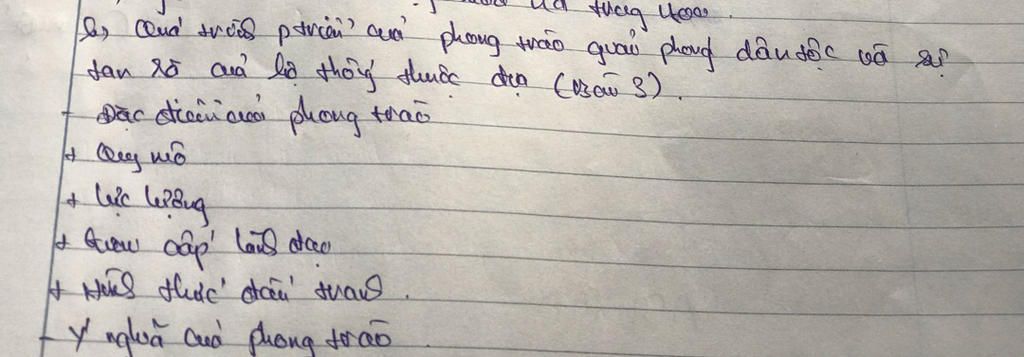 trung Hoa.
b, Quá trình ptriển của phong trào giải phóng dân tộc và sự
tan rã của hệ thống thuộc địa (Bài 3).
- Đặc điểm của phong trào
+ Quy mô
+ Lực lượng
+ Giai cấp lãnh đạo
+ Hình thức đấu tranh.
- Ý nghĩa của phong trào